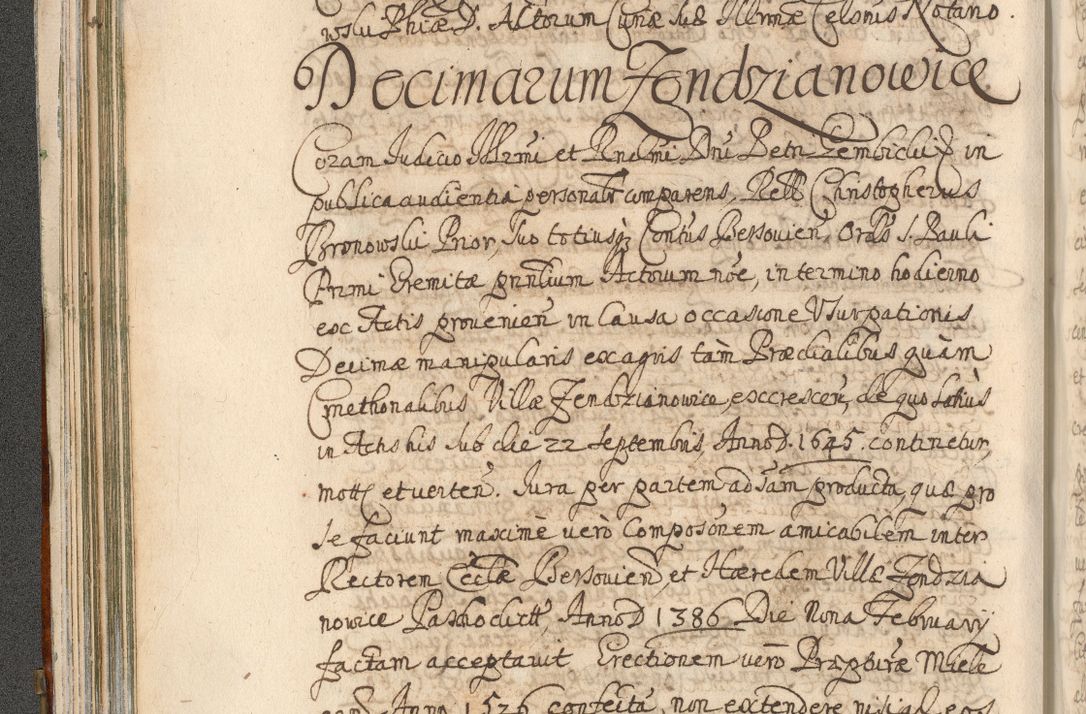 wski Phiæ D. Actorum Curiæ suæ Illrmæ Celsnis Notario.
Decimarum Zendzianowice
Coram Judicio Illrmi et Rndmi Dni Petri Gembicki in
publica audientia personalr comparens, Rels Christopherus
Bronowski Prior, suo totiusq Contus Bessovien, Ordis S. Pauli
Primi Eremitæ gnntium Actorum noe, in termino hodierno
ex Actis provenien in Causa occasione Usurpationis
Decimæ manipularis ex agris tàm Prædialibus quàm
Cmethonalibus Villæ Zendzianowice, excrescen, de quo latiùs
in Actis his sub die 22 Septembris, Anno D. 1645. continetur,
mott et verten. Jura per partem adsam producta, quæ pro
se faciunt maximè verò composonem amicabilem inter
Rectorem Ecclæ Bessovien et Hæredem Villæ Zendzia
nowice Paskoclicti, Anno D 1386 Die Nona February
factam acceptavit Erectionem verò Præpturæ Miele
Anno 1526 confectã, non extendere nisi ad eos